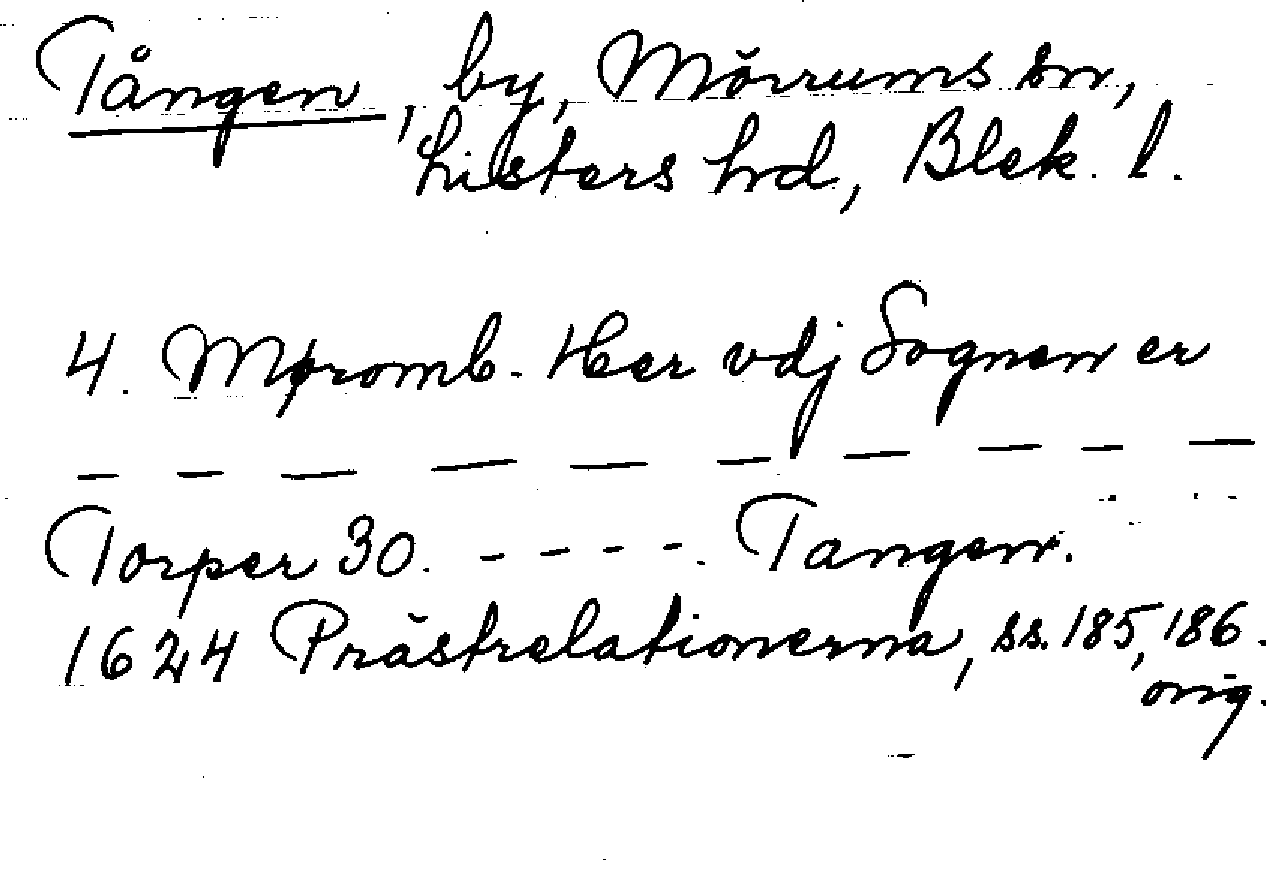 Tången, by, Mörrums sn,
Listers hrd, Blek. l.
4. Møromb. Her vdj Sognen er
— — — — — — — — — —
Torper 30. - - - - . Tangen.
1624 Prästrelationerna, ss. 185, 186.
orig.